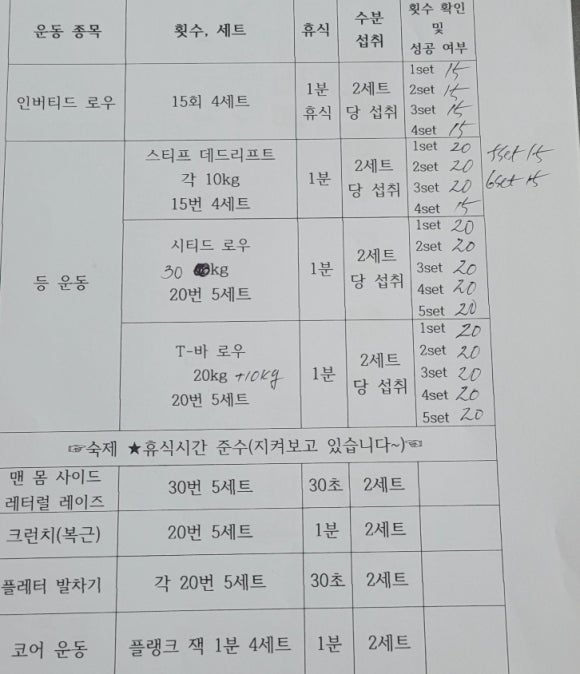 운동 종목 횟수, 세트 휴식 수분 섭취 횟수 확인 및 성공 여부
인버티드 로우 15회 4세트 1분 휴식 2세트 당 섭취
1set 15
2set 15
3set 15
4set 15
등 운동
스티프 데드리프트
각 10kg
15번 4세트
1분
2세트
당 섭취
1set 20 5set 15
2set 20
3set 20 6set 15
4set 15
시티드 로우
30 kg
20번 5세트
1분
2세트
당 섭취
1set 20
2set 20
3set 20
4set 20
5set 20
T-바 로우
20kg +10kg
20번 5세트
1분
2세트
당 섭취
1set 20
2set 20
3set 20
4set 20
5set 20
☞숙제 ★휴식시간 준수(지켜보고 있습니다~)☜
맨 몸 사이드 레터럴 레이즈 30번 5세트 30초 2세트
크런치(복근) 20번 5세트 1분 2세트
플레터 발차기 각 20번 5세트 30초 2세트
코어 운동 플랭크 잭 1분 4세트 1분 2세트